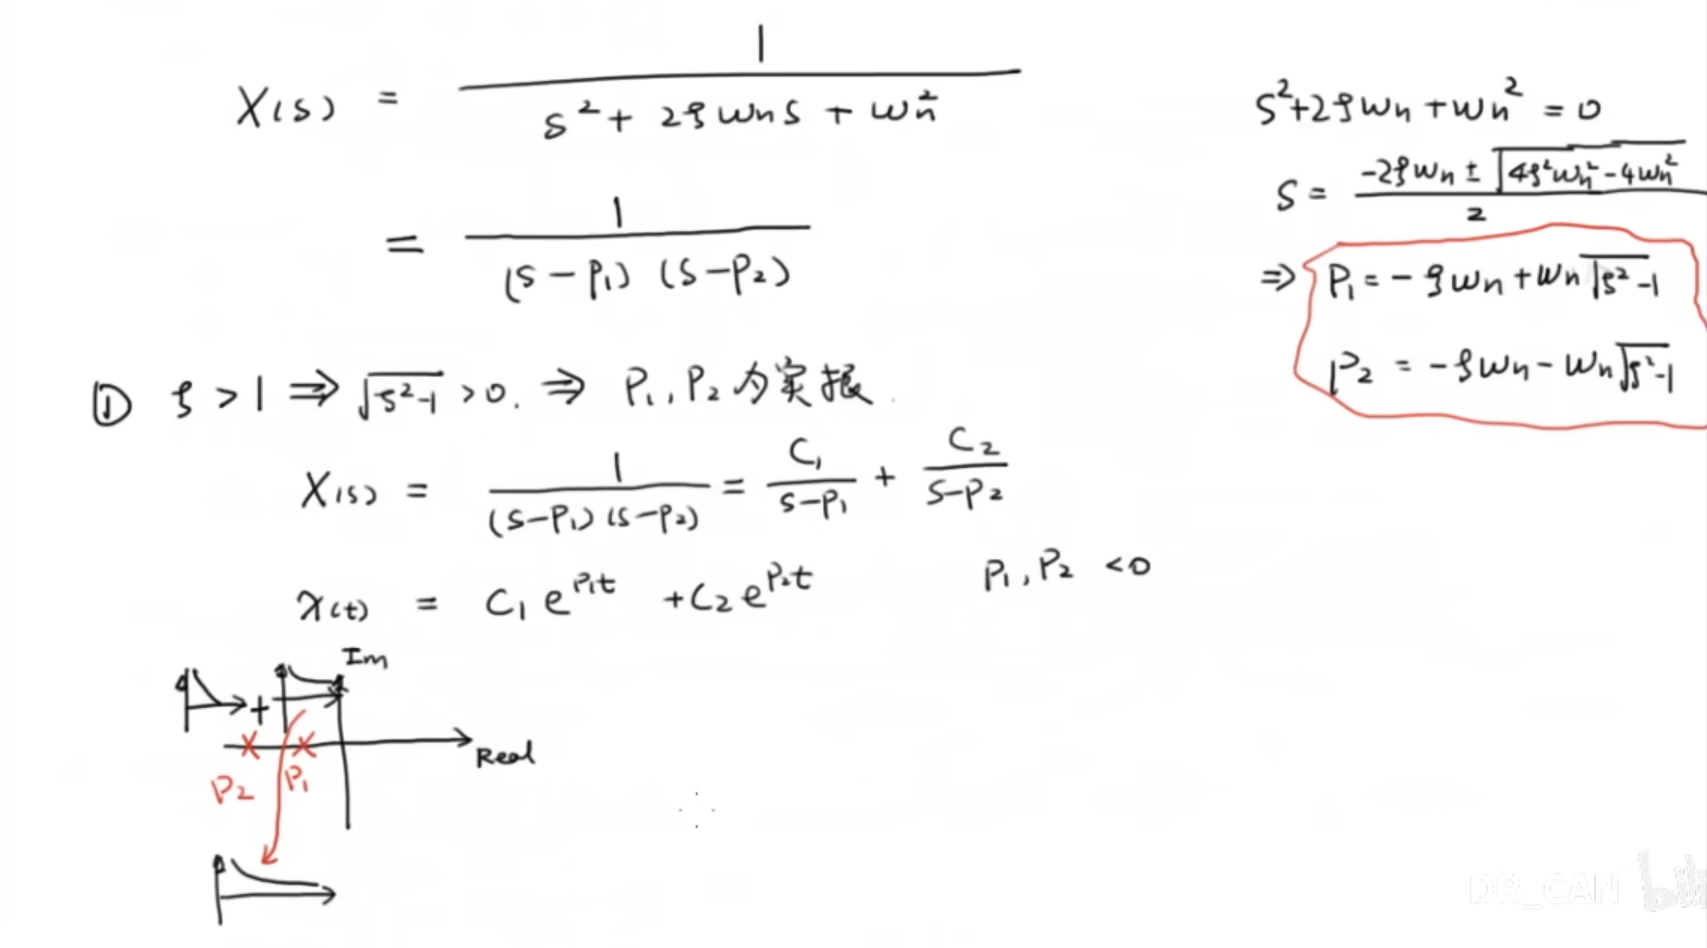 X(s) = 1 / (s² + 2ξωns + ωn²)
= 1 / ((s-P₁)(s-P₂))
s²+2ξωn+ωn² = 0
s = (-2ξωn ± √(4ξ²ωn²-4ωn²)) / 2
⇒ P₁ = -ξωn+ωn√(ξ²-1)
P₂ = -ξωn-ωn√(ξ²-1)
① ξ > 1 ⇒ √(ξ²-1) > 0. ⇒ P₁, P₂ 为实根.
X(s) = 1 / ((s-P₁)(s-P₂)) = C₁/(s-P₁) + C₂/(s-P₂)
x(t) = C₁e^(P₁t) + C₂e^(P₂t) P₁, P₂ < 0
Im
+
Real
P₂ P₁
DR_CAN bili